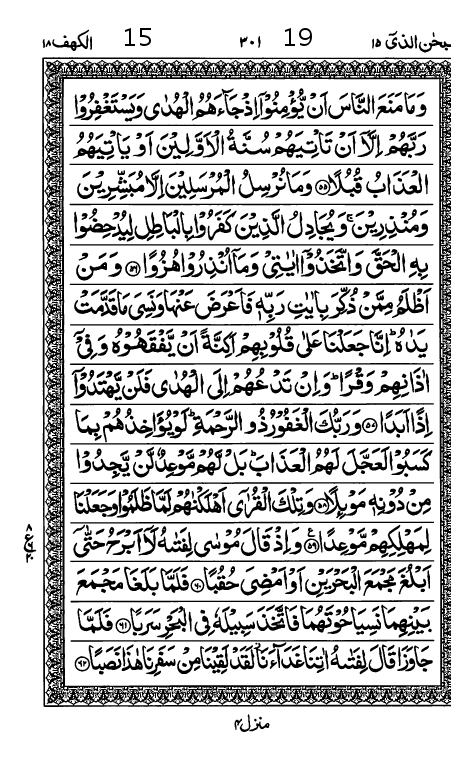 سبحٰن الذیٓ ١٥ 19 ٣٠١ 15 الکهف ١٨
وَمَا مَنَعَ النَّاسَ اَنْ يُّؤْمِنُوْٓا اِذْ جَآءَهُمُ الْهُدٰى وَيَسْتَغْفِرُوْا
رَبَّهُمْ اِلَّآ اَنْ تَاْتِيَهُمْ سُنَّةُ الْاَوَّلِيْنَ اَوْ يَاْتِيَهُمُ
الْعَذَابُ قُبُلًا ﴿٥٥﴾ وَمَا نُرْسِلُ الْمُرْسَلِيْنَ اِلَّا مُبَشِّرِيْنَ
وَمُنْذِرِيْنَ ۚ وَيُجَادِلُ الَّذِيْنَ كَفَرُوْا بِالْبَاطِلِ لِيُدْحِضُوْا
بِهِ الْحَقَّ وَاتَّخَذُوْٓا اٰيٰتِيْ وَمَآ اُنْذِرُوْا هُزُوًا ﴿٥٦﴾ وَمَنْ
اَظْلَمُ مِمَّنْ ذُكِّرَ بِاٰيٰتِ رَبِّهٖ فَاَعْرَضَ عَنْهَا وَنَسِيَ مَا قَدَّمَتْ
يَدٰهُ ؕ اِنَّا جَعَلْنَا عَلٰى قُلُوْبِهِمْ اَكِنَّةً اَنْ يَّفْقَهُوْهُ وَفِيْٓ
اٰذَانِهِمْ وَقْرًا ؕ وَاِنْ تَدْعُهُمْ اِلَى الْهُدٰى فَلَنْ يَّهْتَدُوْٓا
اِذًا اَبَدًا ﴿٥٧﴾ وَرَبُّكَ الْغَفُوْرُ ذُو الرَّحْمَةِ ؕ لَوْ يُؤَاخِذُهُمْ بِمَا
كَسَبُوْا لَعَجَّلَ لَهُمُ الْعَذَابَ ؕ بَلْ لَّهُمْ مَّوْعِدٌ لَّنْ يَّجِدُوْا
مِنْ دُوْنِهٖ مَوْىِٕلًا ﴿٥٨﴾ وَتِلْكَ الْقُرٰٓى اَهْلَكْنٰهُمْ لَمَّا ظَلَمُوْا وَجَعَلْنَا
لِمَهْلِكِهِمْ مَّوْعِدًا ﴿٥٩﴾ وَاِذْ قَالَ مُوْسٰى لِفَتٰىهُ لَآ اَبْرَحُ حَتّٰٓى
اَبْلُغَ مَجْمَعَ الْبَحْرَيْنِ اَوْ اَمْضِيَ حُقُبًا ﴿٦٠﴾ فَلَمَّا بَلَغَا مَجْمَعَ
بَيْنِهِمَا نَسِيَا حُوْتَهُمَا فَاتَّخَذَ سَبِيْلَهٗ فِي الْبَحْرِ سَرَبًا ﴿٦١﴾ فَلَمَّا
جَاوَزَا قَالَ لِفَتٰىهُ اٰتِنَا غَدَآءَنَا ؗ لَقَدْ لَقِيْنَا مِنْ سَفَرِنَا هٰذَا نَصَبًا ﴿٦٢﴾
منزل ٤